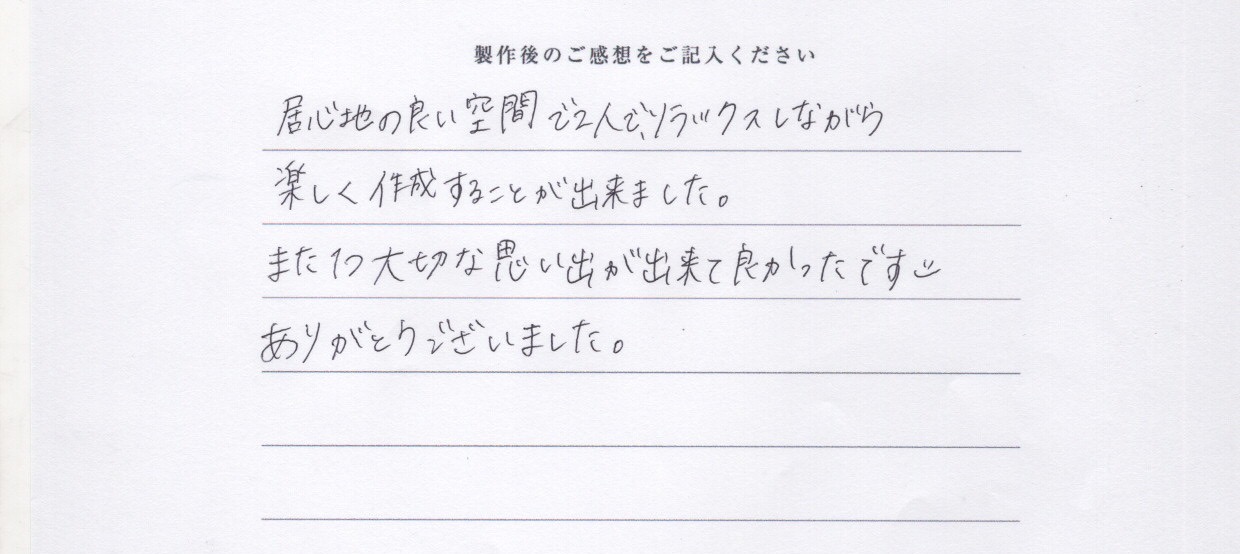 製作後のご感想をご記入ください
居心地の良い空間で2人で、リラックスしながら
楽しく作成することが出来ました。
また1つ大切な思い出が出来て良かったです
ありがとうございました。